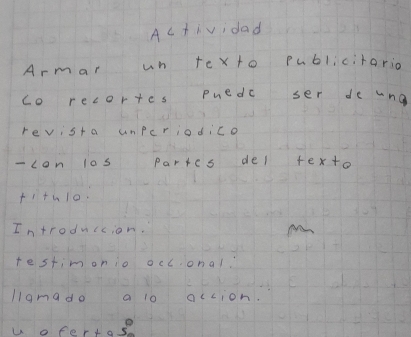 Actividad
Armar un texto publicitario
co recortes puede ser de una
revista unperiodico
-con los partes del texto
titulo.
Introduccion.
testimonio occional:
llamado a lo accion.
u ofertas.